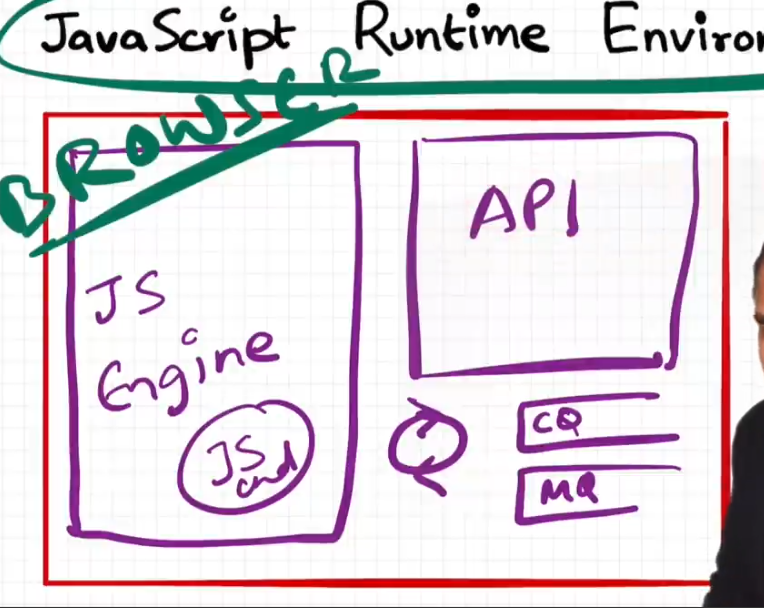 JavaScript Runtime Environ
BROWSER
API
JS
Engine
JS
CQ
MQ